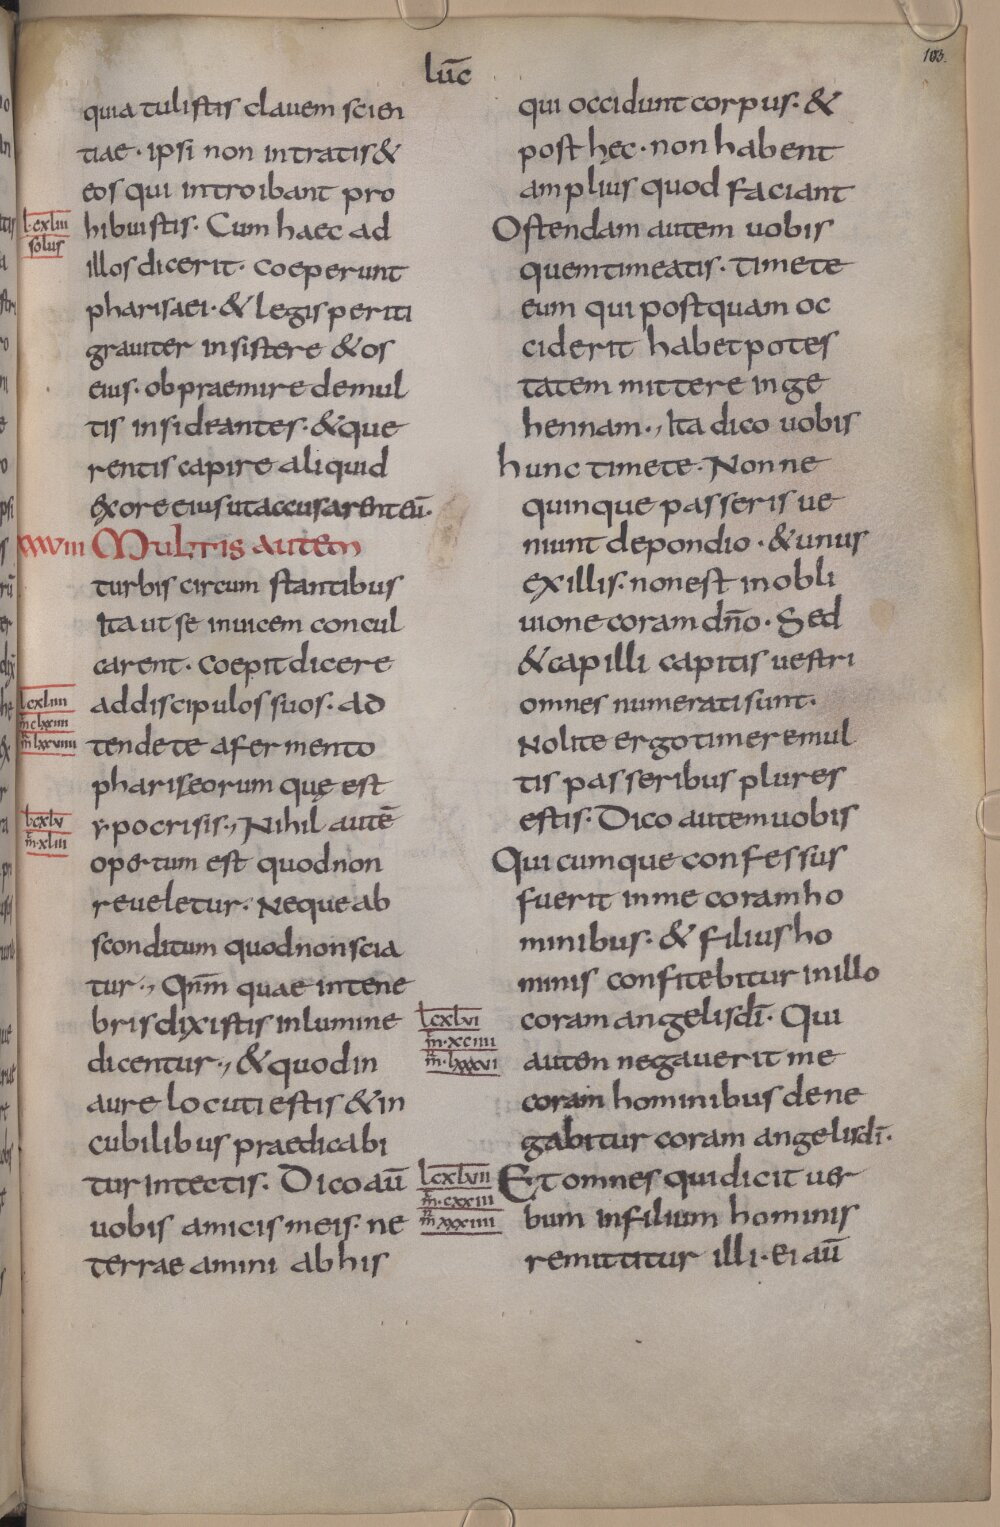 lūc
103.
quia tulistis clauem scien
tiae · ipsi non intratis &
eos qui introibant pro
l·cxliii
solus
hibuistis · Cum haec ad
illos dicerit · coeperunt
pharisaei · & legis periti
grauiter insistere & os
eius · obpraemire de mul
tis insideantes · & que
rentis capire aliquid
ex ore eius ut accusarent eū ·
xxxviii Multis autem
turbis circum stantibus
Ita ut se inuicem concul
carent · coepit dicere
lcxliiii
m̄ clxiiii
m̄ lxxviiii
ad discipulos suos · ad
tendete a fermento
phariseorum quę est
lcxlv
m̄·xliii
ypocrisis ·, Nihil autē
opertum est quod non
reueletur · Neque ab
sconditum quod non scia
tur ·, Qnm̄ quae in tene
bris dixistis in lumine
dicentur ·, & quod in
aure locuti estis & in
cubilibus praedicabi
tur in tectis · Dico aū
uobis amicis meis · ne
terrae amini ab his
qui occidunt corpus · &
post hęc · non habent
amplius quod faciant
Ostendam autem uobis
quem timeatis · timete
eum qui postquam oc
ciderit habet potes
tatem mittere in ge
hennam ·, Ita dico uobis
hunc timete · Nonne
quinque passeris ue
niunt depondio · & unus
ex illis · non est in obli
uione coram dn̄o · Sed
& capilli capitis uestri
omnes numerati sunt ·
Nolite ergo timere mul
tis passeribus plures
estis · Dico autem uobis
Quicumque confessus
fuerit in me coram ho
minibus · & filius ho
minis confitebitur in illo
lcxlvi
m̄·xciiii
m̄·lxxxvi
coram angelis dī · Qui
autem negauerit me
coram hominibus dene
gabitur coram angelis dī ·
lcxlvii
m̄·cxxiii
m̄ xxxiiii
Et omnes qui dicit uer
bum in filium hominis
remittitur illi · Ei aū